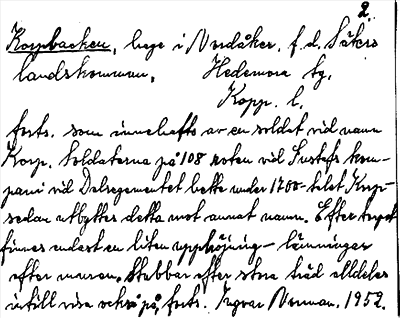 2.
Korpbacken, läge i Nordåker, f.d. Säters
landskommun, Hedemora tg,
Kopp. l.
forts. som innehafts av en soldat vid namn
Korp. Soldaterna på 108 roten vid Gustafs kom-
pani vid Dalregementet hette under 1700-talet Korp-
sedan utbyttes detta mot annat namn. Efter torpet
finnes endast en liten upphöjning - lämningar
efter muren. Stubbar efter stora träd alldeles
intill visa också på, forts. Ingvar Norman. 1952.